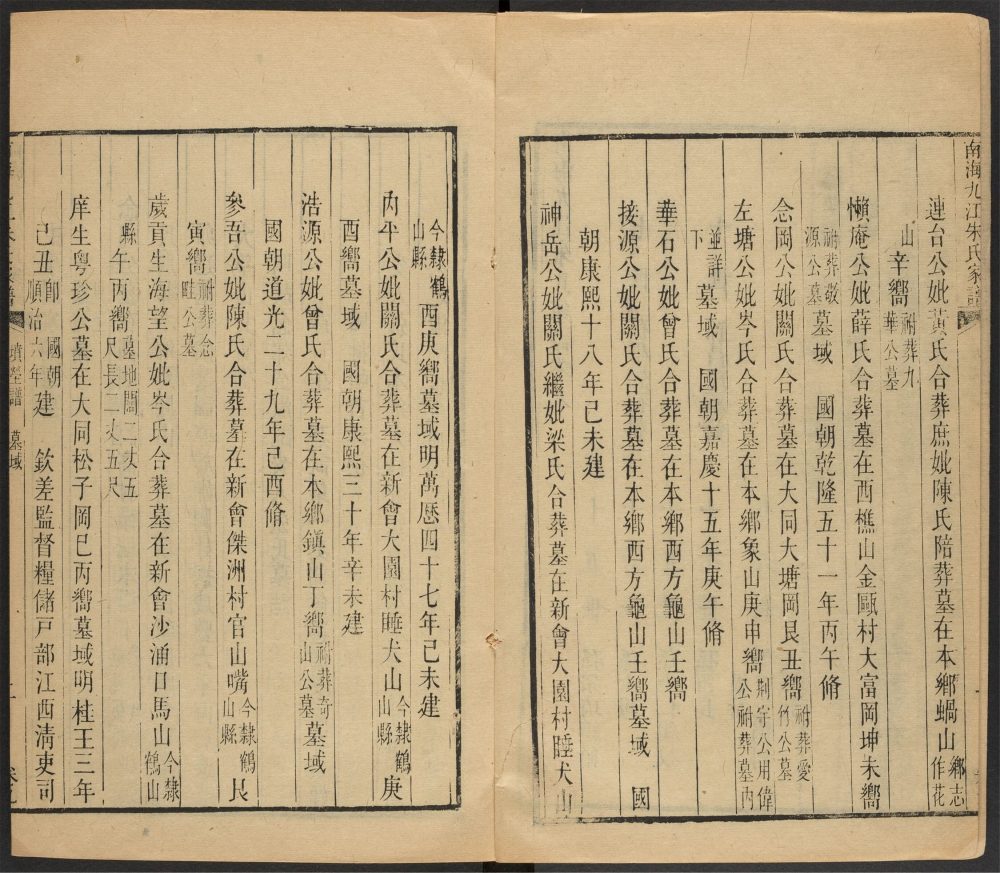 南海九江朱氏家譜
連台公妣黃氏合葬庶妣陳氏陪葬墓在本鄉蝸山鄉志作花
山辛嚮祔葬九華公墓
懶庵公妣薛氏合葬墓在西樵山金甌村大富岡坤未嚮
祔葬敬源公墓墓域 國朝乾隆五十一年丙午脩
念岡公妣關氏合葬墓在大同大塘岡艮丑嚮祔葬愛竹公墓
左塘公妣岑氏合葬墓在本鄉象山庚申嚮荆守公用偉公祔葬墓內
並詳下墓域 國朝嘉慶十五年庚午脩
華石公妣曾氏合葬墓在本鄉西方龜山壬嚮
接源公妣關氏合葬墓在本鄉西方龜山壬嚮墓域 國
朝康熙十八年己未建
神岳公妣關氏繼妣梁氏合葬墓在新會大園村睡犬山
今隸鶴山縣酉庚嚮墓域明萬厯四十七年己未建
內平公妣關氏合葬墓在新會大園村睡犬山今隸鶴山縣庚
酉嚮墓域 國朝康熙三十年辛未建
浩源公妣曾氏合葬墓在本鄉鎮山丁嚮祔葬奇山公墓墓域
國朝道光二十九年己酉脩
參吾公妣陳氏合葬墓在新會傑洲村官山嘴今隸鶴山縣艮
寅嚮祔葬念畦公墓
歲貢生海望公妣岑氏合葬墓在新會沙涌口馬山今隸鶴山
縣午丙嚮墓地闊二丈五尺長二丈五尺
庠生粤珍公墓在大同松子岡巳丙嚮墓域明桂王三年
己丑卽國朝順治六年建 欽差監督糧儲戶部江西清吏司
墳塋譜 墓域